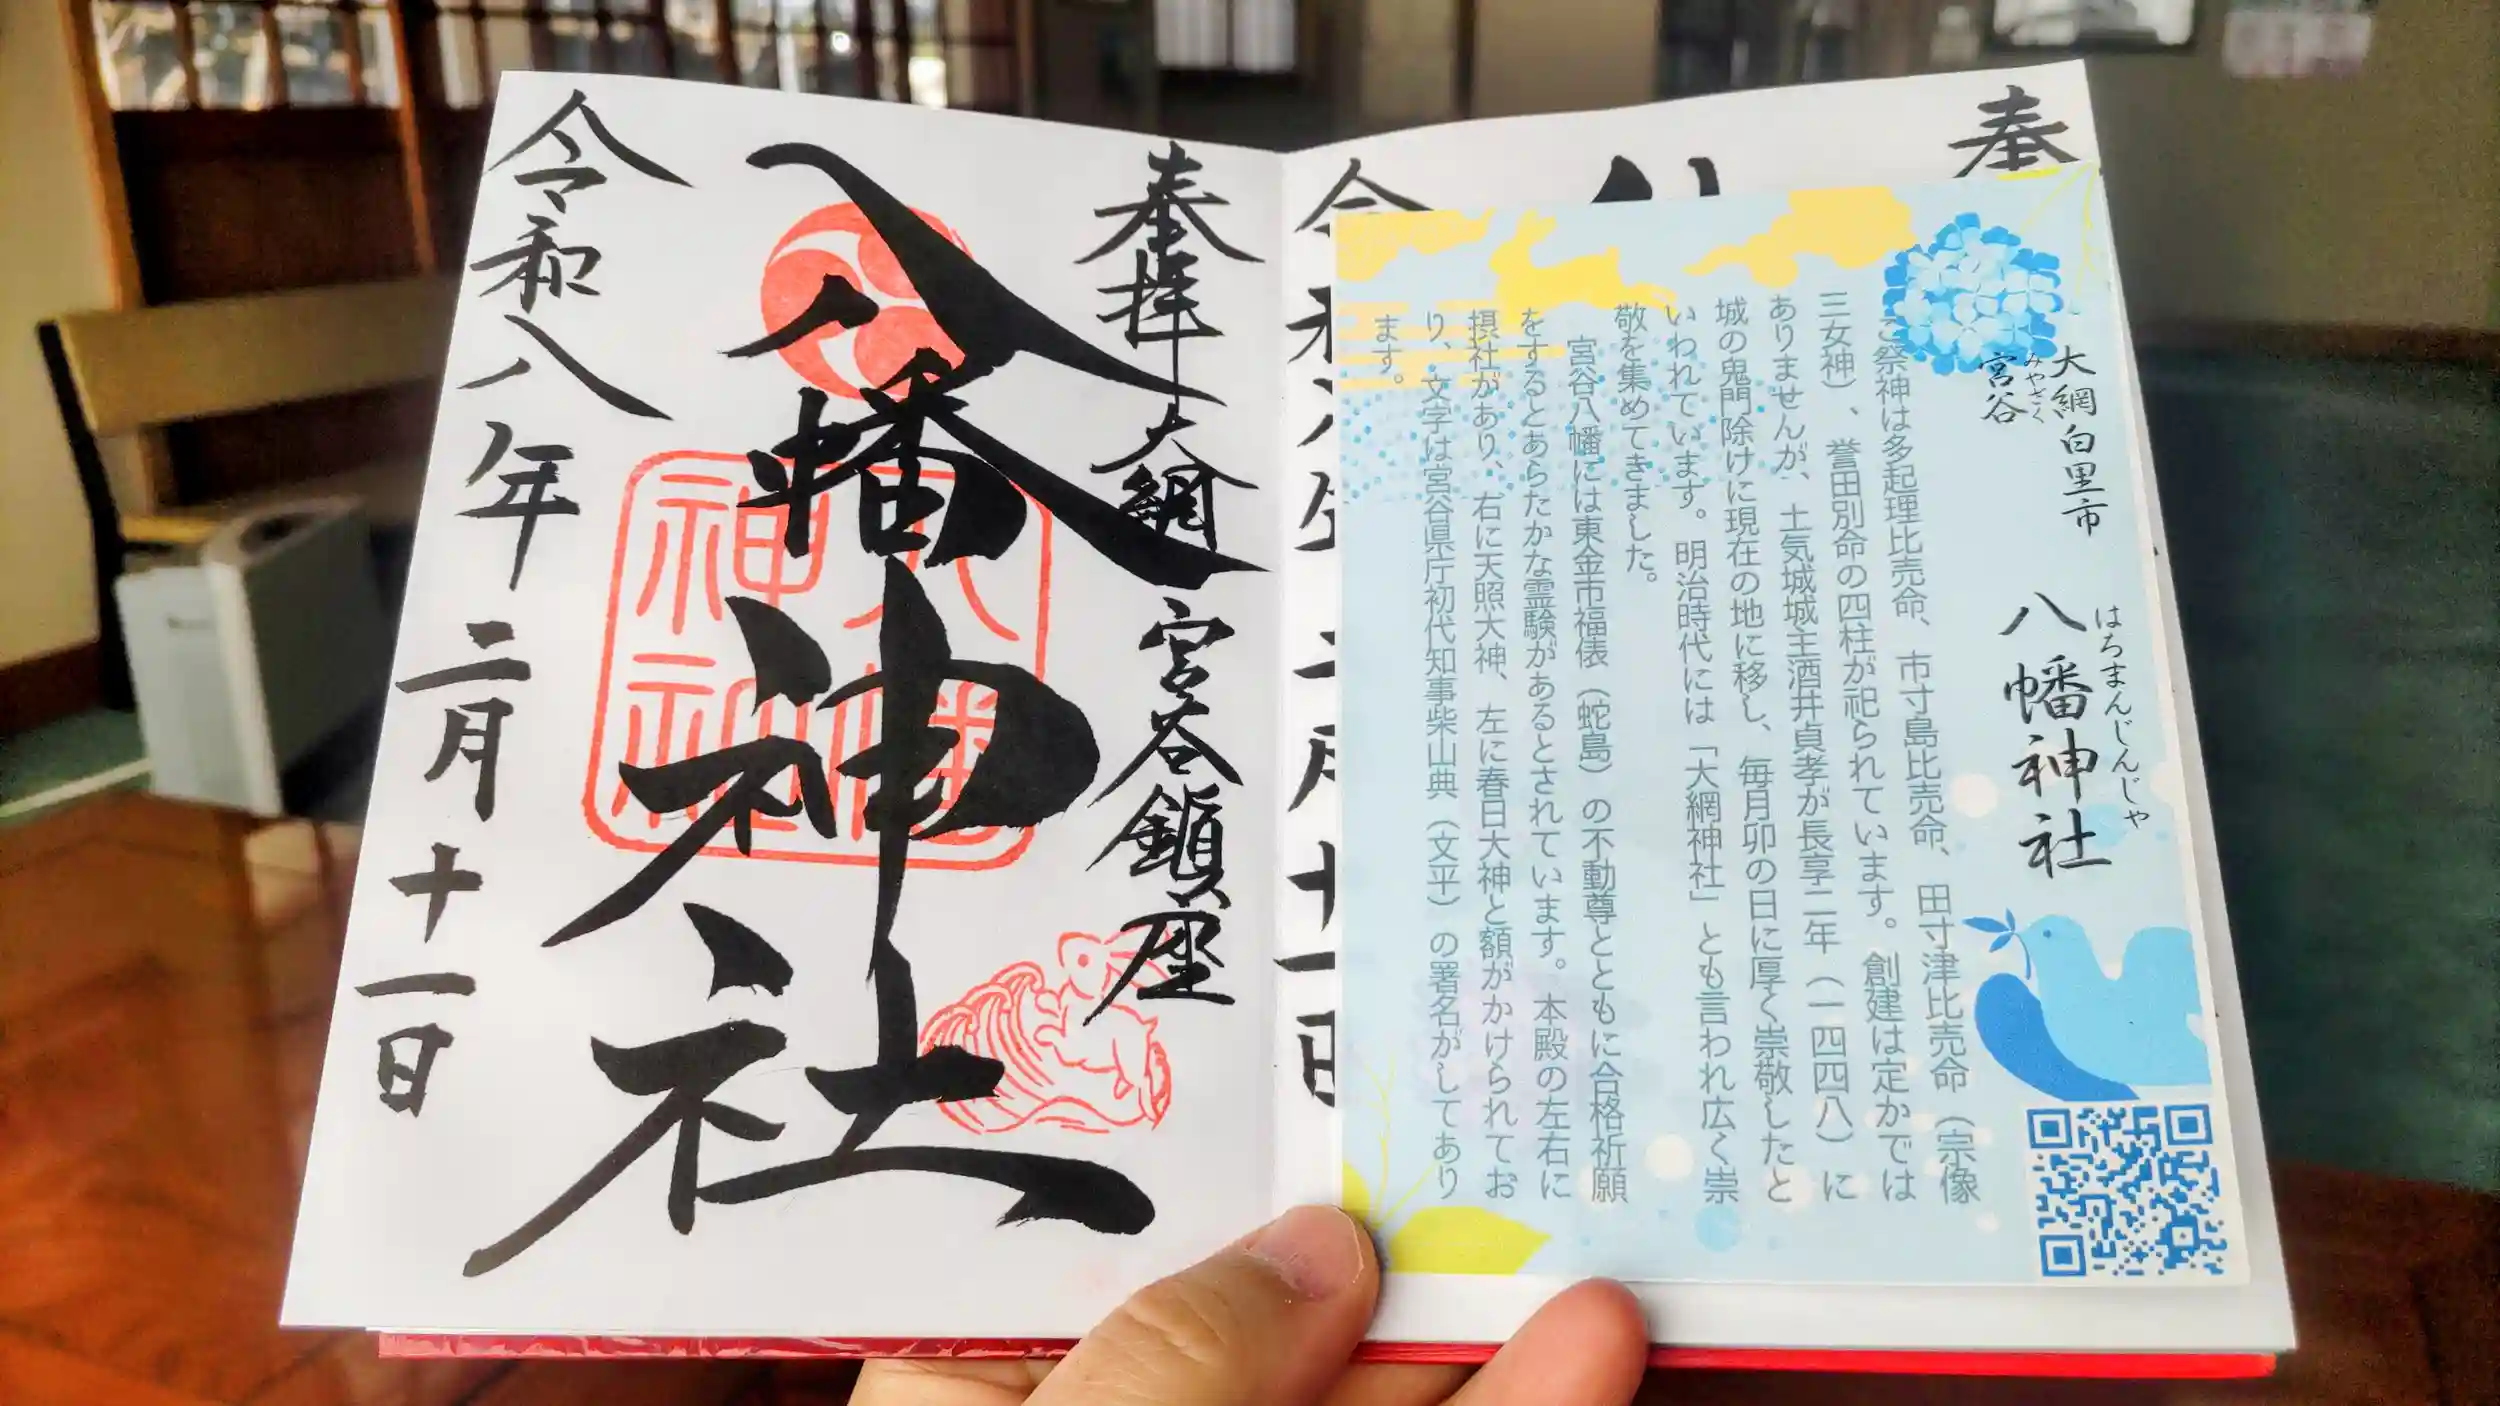 奉
大網白里市
みやざく
宮谷
はちまんじんじゃ
八幡神社
ご祭神は多起理比売命、市寸島比売命、田寸津比売命（宗像
三女神）、誉田別命の四柱が祀られています。創建は定かでは
ありませんが、土気城城主酒井貞孝が長享二年（一四四八）に
城の鬼門除けに現在の地に移し、毎月卯の日に厚く崇敬したと
いわれています。明治時代には「大網神社」とも言われ広く崇
敬を集めてきました。
宮谷八幡には東金市福俵（蛇島）の不動尊とともに合格祈願
をするとあらたかな霊験があるとされています。本殿の左右に
摂社があり、右に天照大神、左に春日大神と額がかけられてお
り、文字は宮谷県庁初代知事柴山典（文平）の署名がしてあり
ます。
令和八年二月十一日
奉拝 大網 宮谷鎮座
八幡神社
八幡神社
令和八年二月十一日